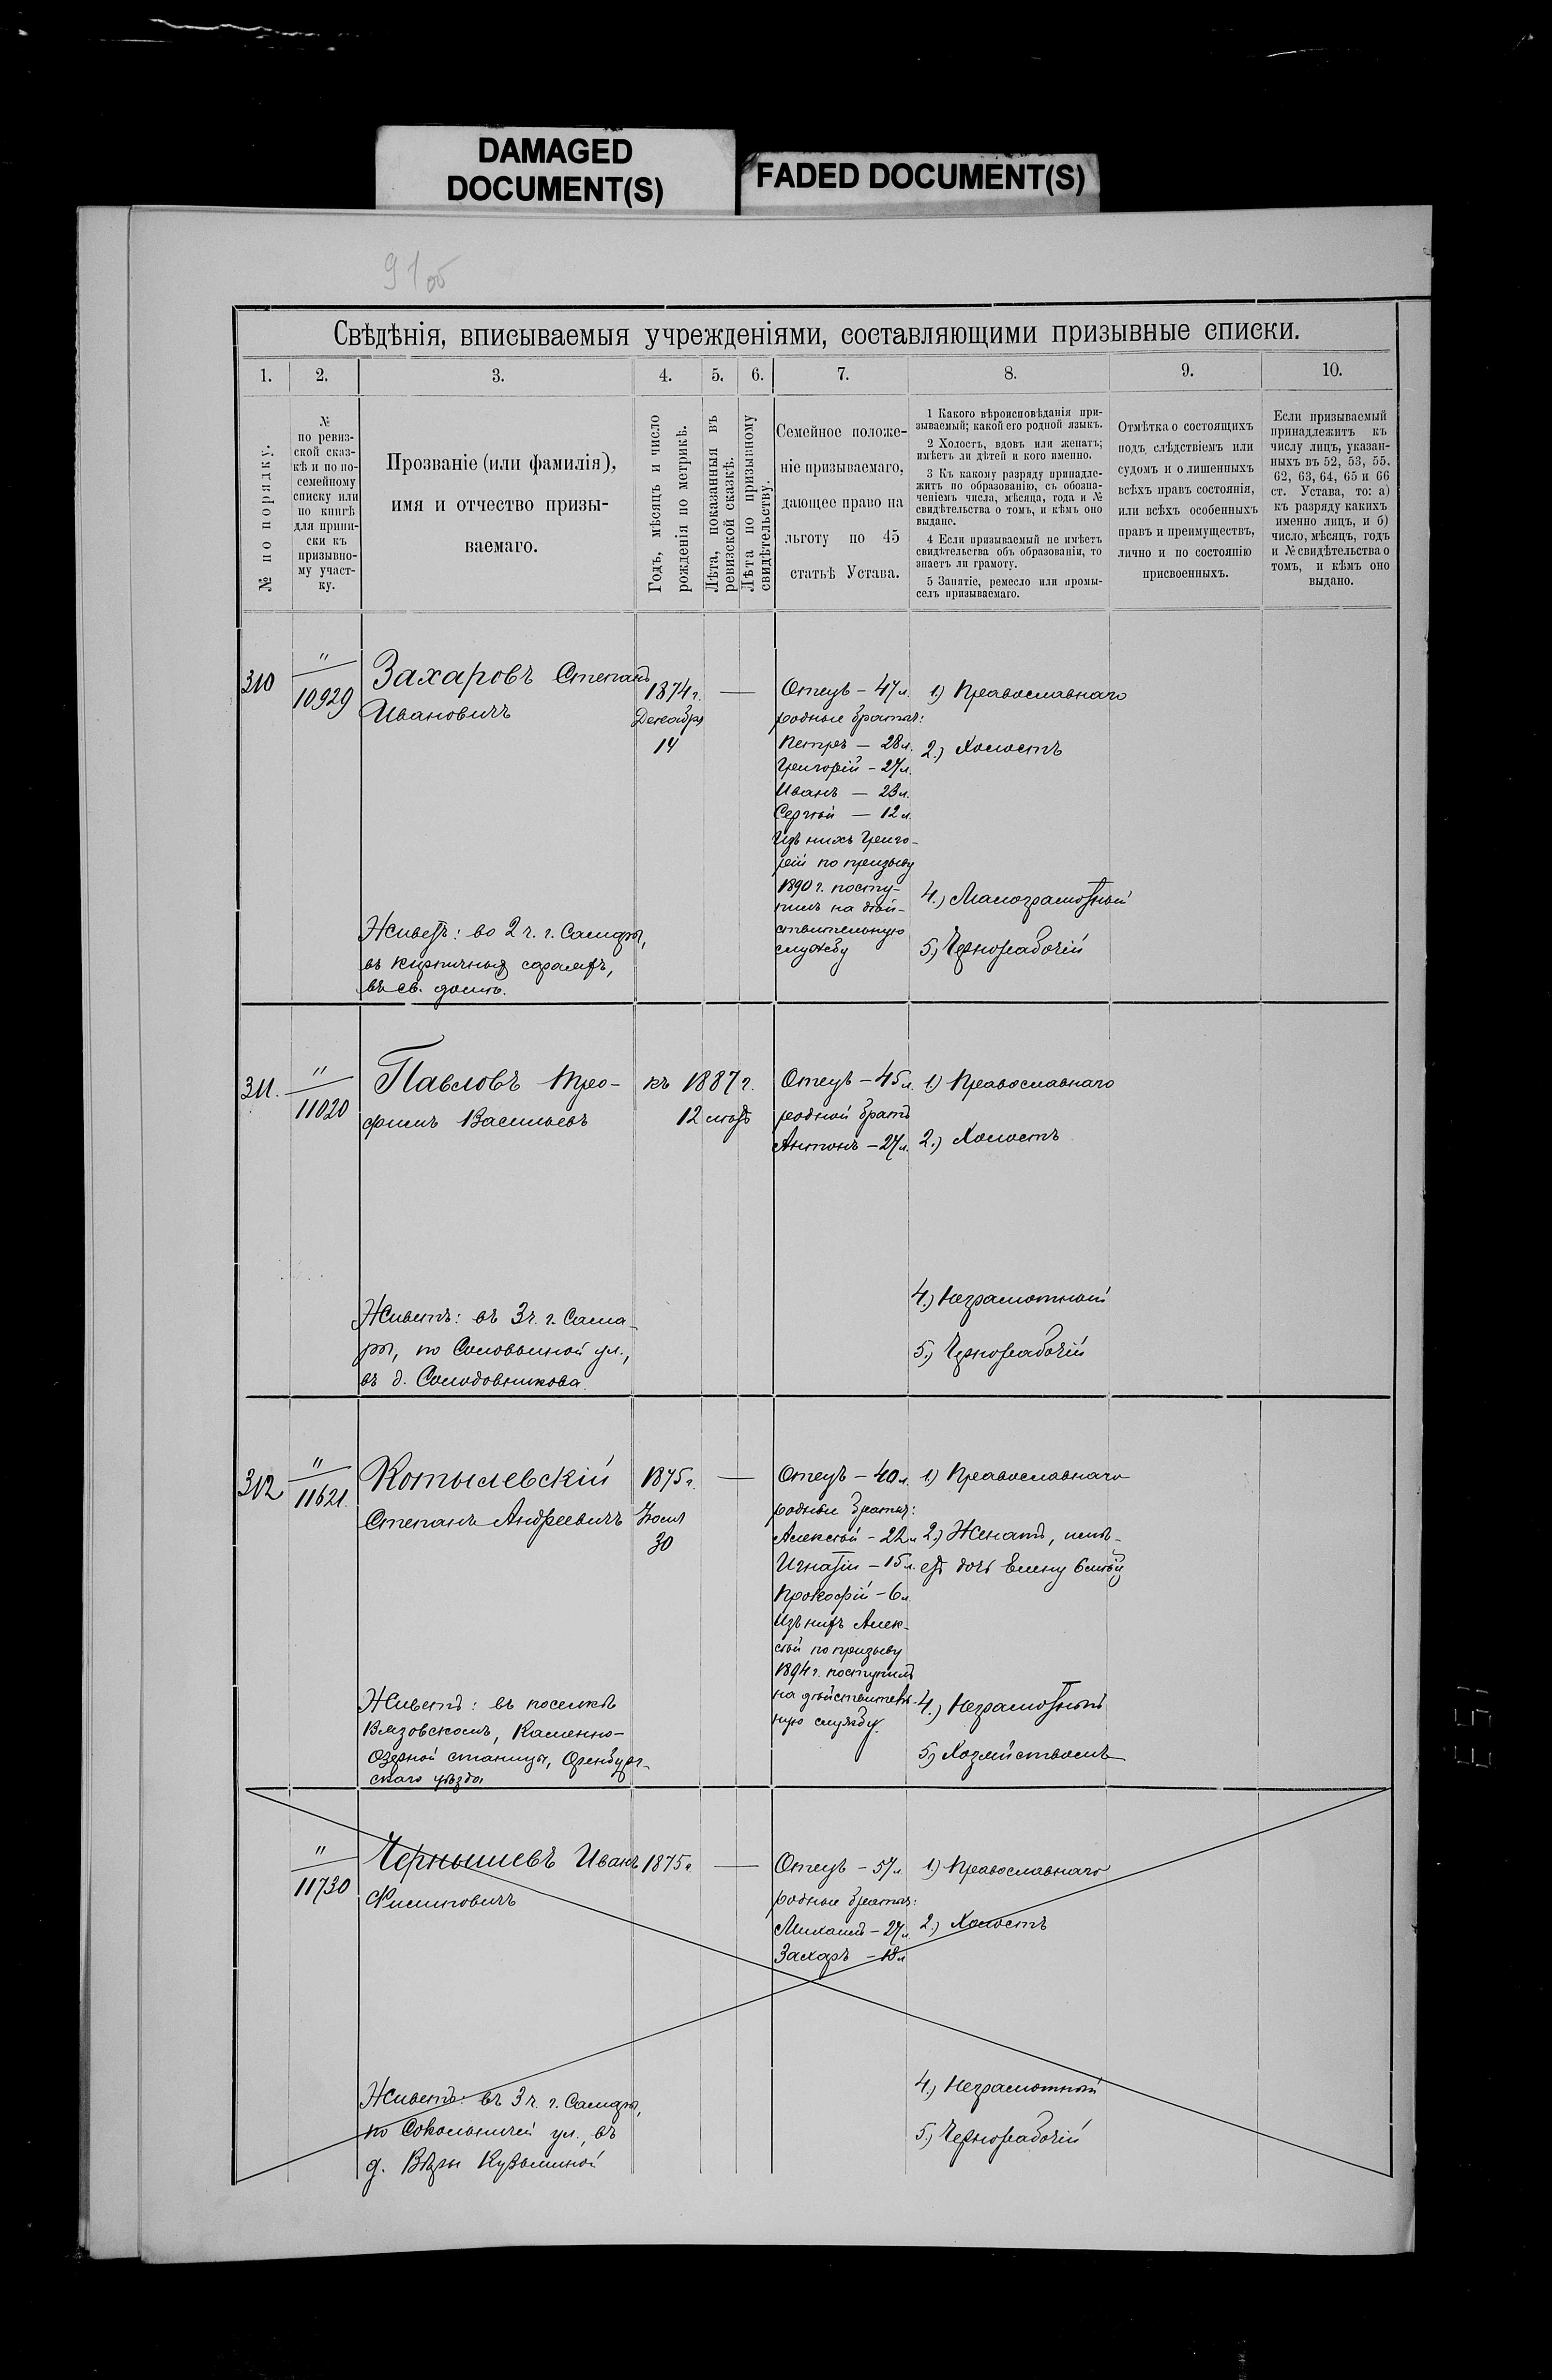 DAMAGED
DOCUMENT(S)
FADED DOCUMENT(S)
91об
Свѣдѣнія, вписываемыя учрежденіями, составляющими призывные списки.
1. 2. 3. 4. 5. 6. 7. 8. 9. 10.
№ по порядку.
№
по ревиз-
ской сказ-
кѣ и по по-
семейному
списку или
по книгѣ
для припи-
ски къ
призывно-
му участ-
ку.
Прозваніе (или фамилія),
имя и отчество призы-
ваемаго.
Годъ, мѣсяцъ и число
рожденія по метрикѣ.
Лѣта, показанныя въ
ревизской сказкѣ.
Лѣта по призывному
свидѣтельству.
Семейное положе-
ніе призываемаго,
дающее право на
льготу по 45
статьѣ Устава.
1 Какого вѣроисповѣданія при-
зываемый; какой его родной языкъ.
2 Холостъ, вдовъ или женатъ;
имѣетъ ли дѣтей и кого именно.
3 Къ какому разряду принадле-
житъ по образованію, съ обозна-
ченіемъ числа, мѣсяца, года и №
свидѣтельства о томъ, и кѣмъ оно
выдано.
4 Если призываемый не имѣетъ
свидѣтельства объ образованіи, то
знаетъ ли грамоту.
5 Занятіе, ремесло или промы-
селъ призываемаго.
Отмѣтка о состоящихъ
подъ слѣдствіемъ или
судомъ и о лишенныхъ
всѣхъ правъ состоянія,
или всѣхъ особенныхъ
правъ и преимуществъ,
лично и по состоянію
присвоенныхъ.
Если призываемый
принадлежитъ къ
числу лицъ, указан-
ныхъ въ 52, 53, 55,
62, 63, 64, 65 и 66
ст. Устава, то: а)
къ разряду какихъ
именно лицъ, и б)
число, мѣсяцъ, годъ
и № свидѣтельства о
томъ, и кѣмъ оно
выдано.
310
"
10929
Захаровъ Степанъ
Ивановичъ
1874 г.
Декабря
14
—
Отецъ — 47 л.
родные братья:
Петръ — 28 л.
Григорій — 27 л.
Иванъ — 23 л.
Сергѣй — 12 л.
Изъ нихъ Григо-
рій по призыву
1890 г. посту-
пилъ на дѣй-
ствительную
службу
1) Православнаго
2.) Холостъ
4.) Малограмотный
5.) Чернорабочій
Живетъ: во 2 ч. г. Самары,
въ кирпичныхъ сараяхъ,
въ св. домѣ.
311.
"
11020
Павловъ Тро-
фимъ Васильевъ
къ 1887 г.
12 лѣтъ
Отецъ — 45 л.
родной братъ
Антонъ — 27 л.
1) Православнаго
2.) Холостъ
4.) Неграмотный
5.) Чернорабочій
Живетъ: въ 3 ч. г. Сама-
ры, по Соловьиной ул.,
въ д. Солодовникова.
312
"
11621.
Котылевскій
Степанъ Андреевичъ
1875 г.
Іюля
30
—
Отецъ — 40 л.
родные братья:
Алексѣй — 22 л
Игнатій — 15 л.
Прокофій — 6 л.
Изъ нихъ Алек-
сѣй по призыву
1894 г. поступилъ
на дѣйствитель-
ную службу.
1) Православнаго
2.) Женатъ, имѣ-
етъ дочь Елену
4.) Неграмотный
5.) Хозяйствомъ
Живетъ: въ поселкѣ
Вязовскомъ, Каменно-
Озерной станицы, Оренбург-
скаго уѣзда
"
11730
Чернышевъ Иванъ
Филипповичъ
1875 г.
—
Отецъ — 57 л
родные братья:
Михаилъ — 27 л.
Захаръ — 18 л
1) Православнаго
2.) Холостъ
4.) Неграмотный
5.) Чернорабочій
Живетъ: въ 3 ч. г. Самары,
по Сокольничей ул., въ
д. Вѣры Кузьминой